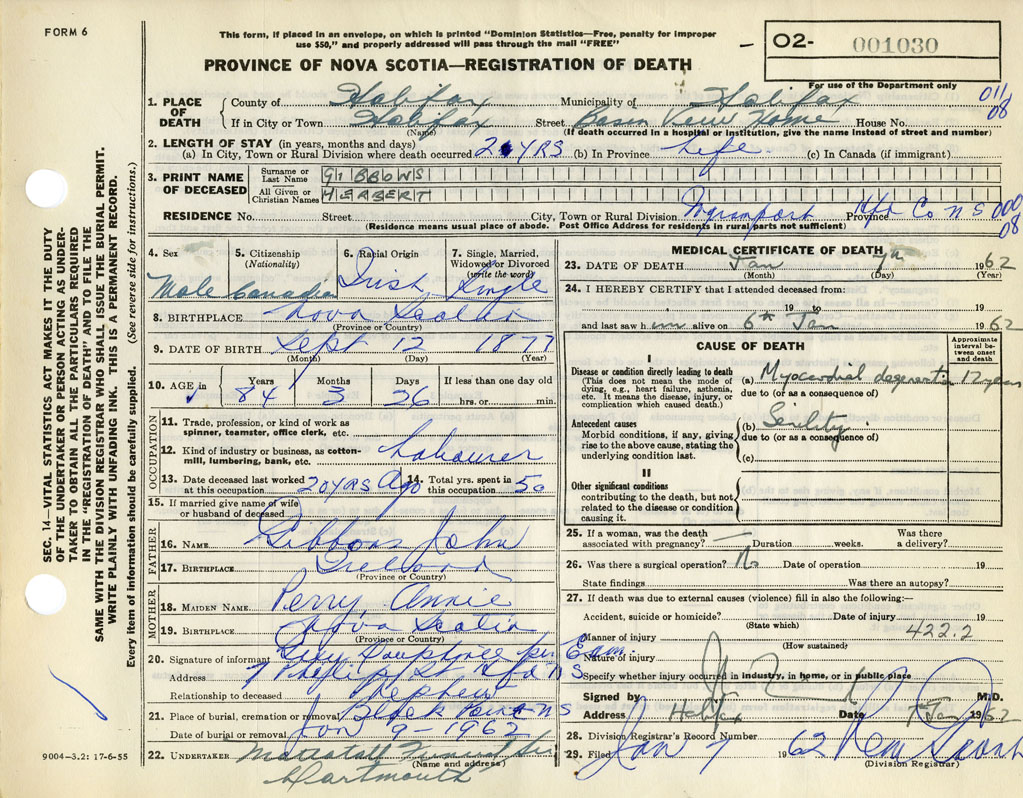 FORM 6
This form, if placed in an envelope, on which is printed "Dominion Statistics—Free, penalty for improper
use $50," and properly addressed will pass through the mail "FREE"
PROVINCE OF NOVA SCOTIA—REGISTRATION OF DEATH
O2- 001030
For use of the Department only
011
08
1. PLACE OF DEATH
County of Halifax Municipality of Halifax
If in City or Town Halifax Street Basin View Home House No.
(Name) (If death occurred in a hospital or institution, give the name instead of street and number)
2. LENGTH OF STAY (in years, months and days)
(a) In City, Town or Rural Division where death occurred 2 YRS (b) In Province Life. (c) In Canada (if immigrant)
3. PRINT NAME OF DECEASED
Surname or Last Name GIBBONS
All Given or Christian Names HERBERT
RESIDENCE No. Street City, Town or Rural Division Province Hfx Co N S 000
08
(Residence means usual place of abode. Post Office Address for residents in rural parts not sufficient)
4. Sex Male
5. Citizenship (Nationality) Canadian
6. Racial Origin Irish
7. Single, Married, Widowed or Divorced (write the word) Single
8. BIRTHPLACE Nova Scotia
(Province or Country)
9. DATE OF BIRTH Sept 12 1877
(Month) (Day) (Year)
10. AGE in Years 84 Months 3 Days 26 If less than one day old hrs. or min.
OCCUPATION
11. Trade, profession, or kind of work as spinner, teamster, office clerk, etc.
12. Kind of industry or business, as cotton-mill, lumbering, bank, etc. Labourer
13. Date deceased last worked at this occupation 20 YRS Ago 14. Total yrs. spent in this occupation 50
15. If married give name of wife or husband of deceased
FATHER
16. NAME Gibbons John
17. BIRTHPLACE Ireland
(Province or Country)
MOTHER
18. MAIDEN NAME Perry Annie
19. BIRTHPLACE Nova Scotia
(Province or Country)
20. Signature of informant
Address 7 Phillip St Hfx N S
Relationship to deceased Nephew
21. Place of burial, cremation or removal Black Point NS
Date of burial or removal Jan 9 - 1962
22. UNDERTAKER Mattatall Funeral
(Name and address)
Dartmouth
9004—3.2: 17-6-55
MEDICAL CERTIFICATE OF DEATH
23. DATE OF DEATH Jan 7th 1962
(Month) (Day) (Year)
24. I HEREBY CERTIFY that I attended deceased from:
19 to 19
and last saw him alive on 6th Jan 1962
CAUSE OF DEATH
Approximate interval between onset and death
I
Disease or condition directly leading to death
(This does not mean the mode of dying, e.g., heart failure, asthenia, etc. It means the disease, injury, or complication which caused death.)
(a) Myocardial degeneration 12 years
due to (or as a consequence of)
Antecedent causes
Morbid conditions, if any, giving rise to the above cause, stating the underlying condition last.
(b) Senility
due to (or as a consequence of)
(c)
II
Other significant conditions
contributing to the death, but not related to the disease or condition causing it.
25. If a woman, was the death associated with pregnancy? — Duration weeks. Was there a delivery?
26. Was there a surgical operation? No Date of operation 19
State findings Was there an autopsy?
27. If death was due to external causes (violence) fill in also the following:—
Accident, suicide or homicide? Date of injury 19
(State which)
422.2
Manner of injury
(How sustained)
Nature of injury
Specify whether injury occurred in industry, in home, or in public place
Signed by M.D.
Address Halifax Date 7 Jan 1962
28. Division Registrar's Record Number
29. Filed Jan 7 1962
(Division Registrar)
SEC. 14—VITAL STATISTICS ACT MAKES IT THE DUTY
OF THE UNDERTAKER OR PERSON ACTING AS UNDER-
TAKER TO OBTAIN ALL THE PARTICULARS REQUIRED
IN THE "REGISTRATION OF DEATH" AND TO FILE THE
SAME WITH THE DIVISION REGISTRAR WHO SHALL ISSUE THE BURIAL PERMIT.
WRITE PLAINLY WITH UNFADING INK. THIS IS A PERMANENT RECORD.
Every item of information should be carefully supplied. (See reverse side for instructions.)